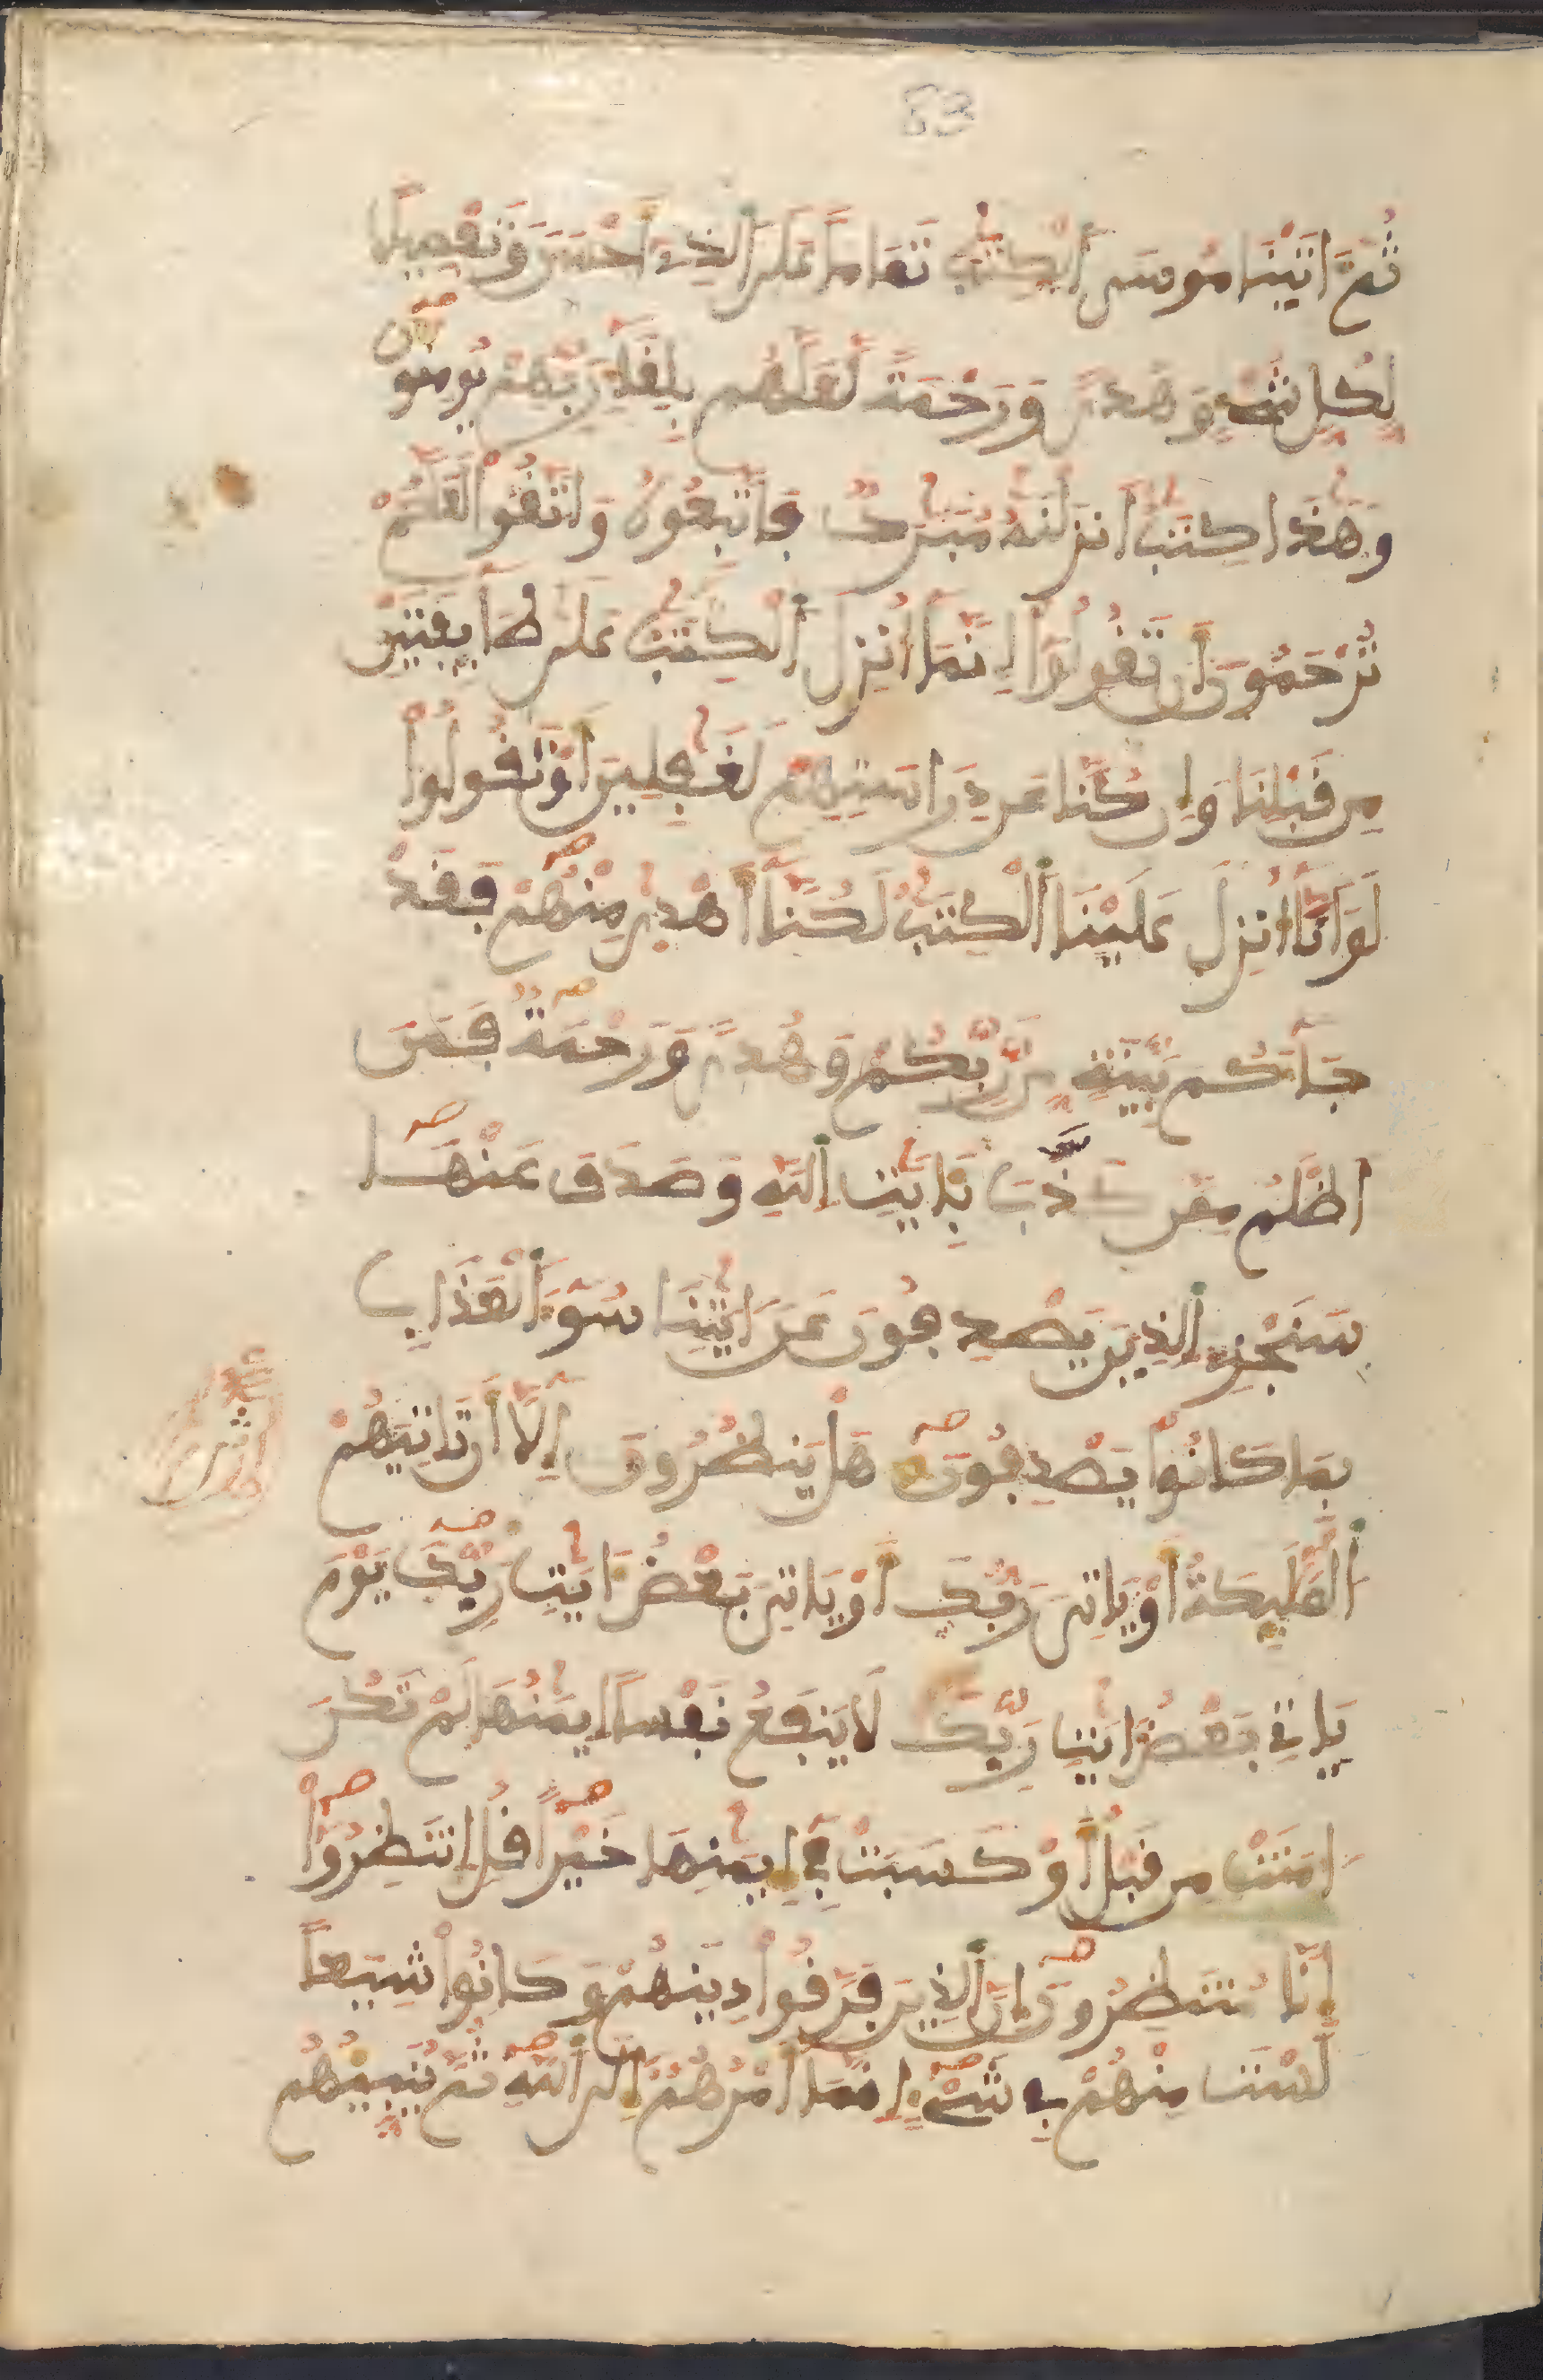 83
ثُمَّ ءَاتَيْنَا مُوسَى ٱلْكِتَٰبَ تَمَامًا عَلَى ٱلَّذِىٓ أَحْسَنَ وَتَفْصِيلًا
لِّكُلِّ شَىْءٍ وَهُدًى وَرَحْمَةً لَّعَلَّهُم بِلِقَآءِ رَبِّهِمْ يُومِنُونَ
وَهَٰذَا كِتَٰبٌ أَنزَلْنَٰهُ مُبَٰرَكٌ فَاتَّبِعُوهُ وَاتَّقُوا۟ لَعَلَّكُمْ
تُرْحَمُونَ أَن تَقُولُوٓا۟ إِنَّمَآ أُنزِلَ ٱلْكِتَٰبُ عَلَىٰ طَآئِفَتَيْنِ
مِن قَبْلِنَا وَإِن كُنَّا عَن دِرَاسَتِهِمْ لَغَٰفِلِينَ أَوْ تَقُولُوا۟
لَوَ انَّآ أُنزِلَ عَلَيْنَا ٱلْكِتَٰبُ لَكُنَّآ أَهْدَىٰ مِنْهُمْ فَقَدْ
جَآءَكُم بَيِّنَةٌ مِّن رَّبِّكُمْ وَهُدًى وَرَحْمَةٌ فَمَنَ
اظْلَمُ مِمَّن كَذَّبَ بِـَٔايَٰتِ ٱللَّهِ وَصَدَفَ عَنْهَا
سَنَجْزِى ٱلَّذِينَ يَصْدِفُونَ عَنَ ايَٰتِنَا سُوٓءَ ٱلْعَذَابِ
بِمَا كَانُوا۟ يَصْدِفُونَ هَلْ يَنظُرُونَ إِلَّآ أَن تَاتِيَهُمُ
ٱلْمَلَٰٓئِكَةُ أَوْ يَاتِىَ رَبُّكَ أَوْ يَاتِىَ بَعْضُ ءَايَٰتِ رَبِّكَ يَوْمَ
يَاتِى بَعْضُ ءَايَٰتِ رَبِّكَ لَا يَنفَعُ نَفْسًا إِيمَٰنُهَا لَمْ تَكُنَ
امَنَتْ مِن قَبْلُ أَوْ كَسَبَتْ فِىٓ إِيمَٰنِهَا خَيْرًا قُلِ انتَظِرُوٓا۟
إِنَّا مُنتَظِرُونَ إِنَّ ٱلَّذِينَ فَرَّقُوا۟ دِينَهُمْ وَكَانُوا۟ شِيَعًا
لَّسْتَ مِنْهُمْ فِى شَىْءٍ إِنَّمَآ أَمْرُهُمُۥٓ إِلَى ٱللَّهِ ثُمَّ يُنَبِّئُهُم